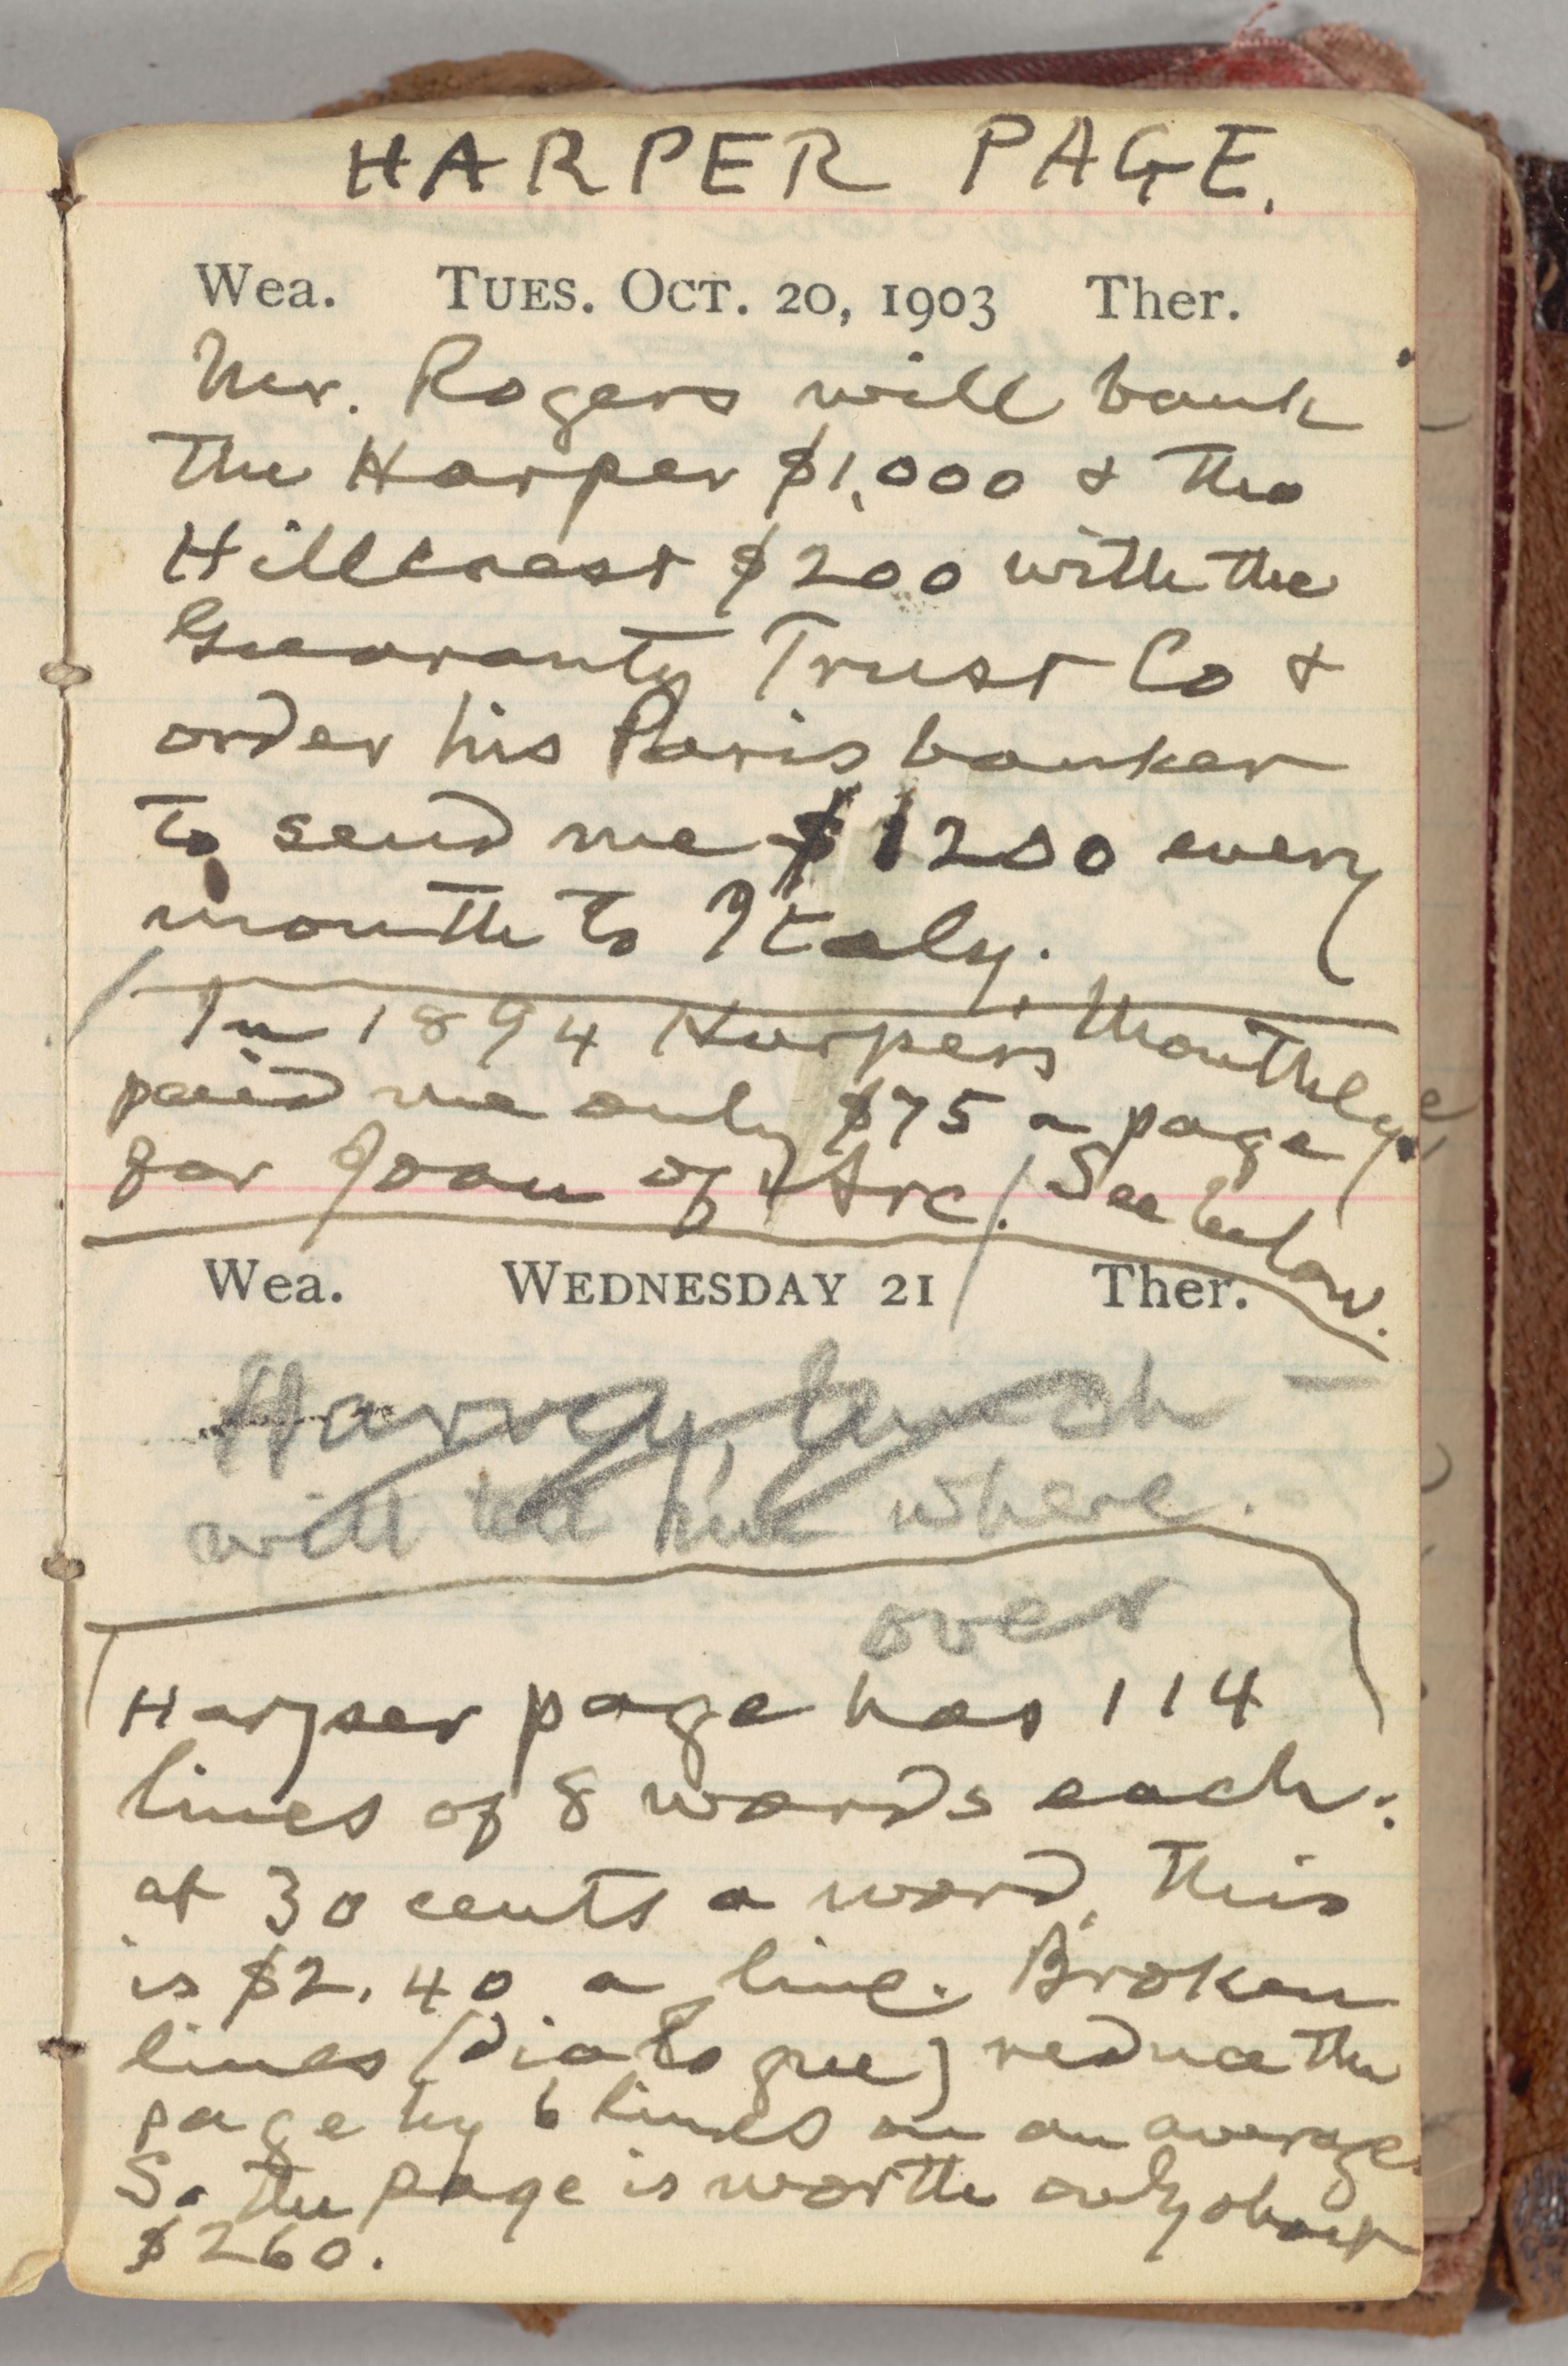 HARPER PAGE.
Wea. TUES. OCT. 20, 1903 Ther.
Mr. Rogers will bank
the Harper $1,000 & the
Hillcrest $200 with the
Guaranty Trust Co &
order his Paris banker
to send me $1200 every
month to Italy.
In 1894 Harper's Monthly
paid me only $75 a page
for Joan of Arc. See below.
Wea. WEDNESDAY 21 Ther.
Harvey, lunch —
will tell him where.
over
Harper page has 114
lines of 8 words each:
at 30 cents a word, this
is $2.40 a line. Broken
lines (dialogue) reduce the
page by 6 lines on an average.
So the page is worth only about
$260.